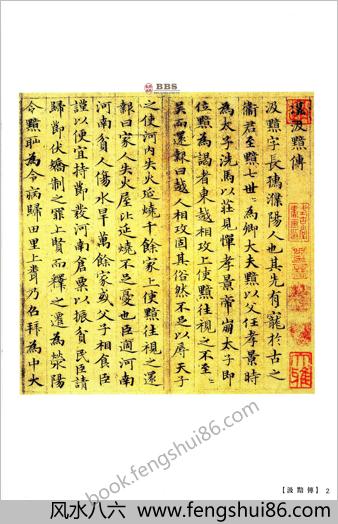 BBS
汲黯傳
汲黯字長孺濮陽人也其先有寵於古之
衛君至黯七世〻為卿大夫黯以父任孝景時
為太子洗馬以莊見憚孝景帝崩太子即
位黯為謁者東越相攻上使黯往視之不至〻
吳而還報曰越人相攻固其俗然不足以辱天子
之使河內失火延燒千餘家上使黯往視之還
報曰家人失火屋比延燒不足憂也臣過河南
河南貧人傷水旱萬餘家或父子相食臣
謹以便宜持節發河南倉粟以振貧民臣請
歸節伏矯制之罪上賢而釋之遷為滎陽
令黯恥為令病歸田里上聞乃召拜為中大
book.fengshui86.com
【汲黯傳】 2
风水八六－www.fengshui86.com